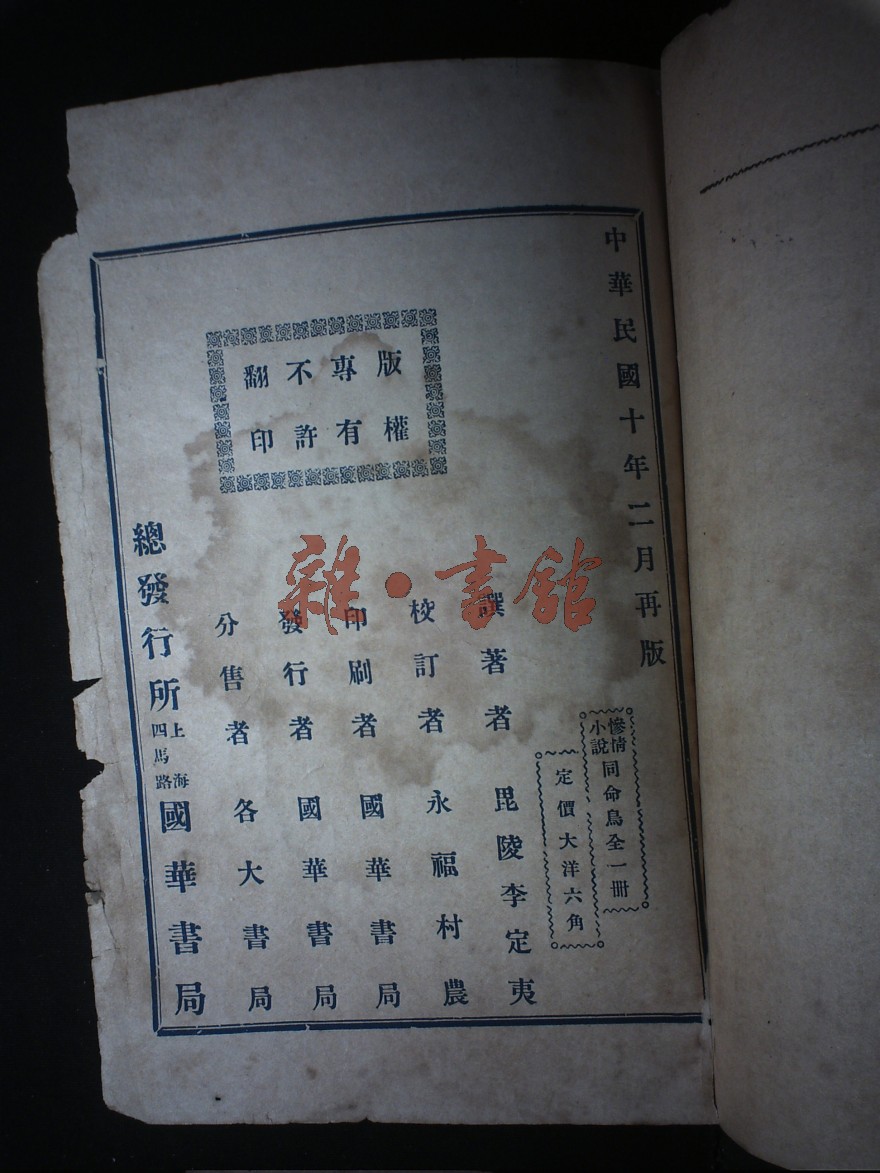 中華民國十年二月再版
慘情小說同命鳥全一冊
定價大洋六角
版權專有不許翻印
撰著者 毘陵李定夷
校訂者 永福村農
印刷者 國華書局
發行者 國華書局
分售者 各大書局
總發行所 上海四馬路 國華書局
雜·書館